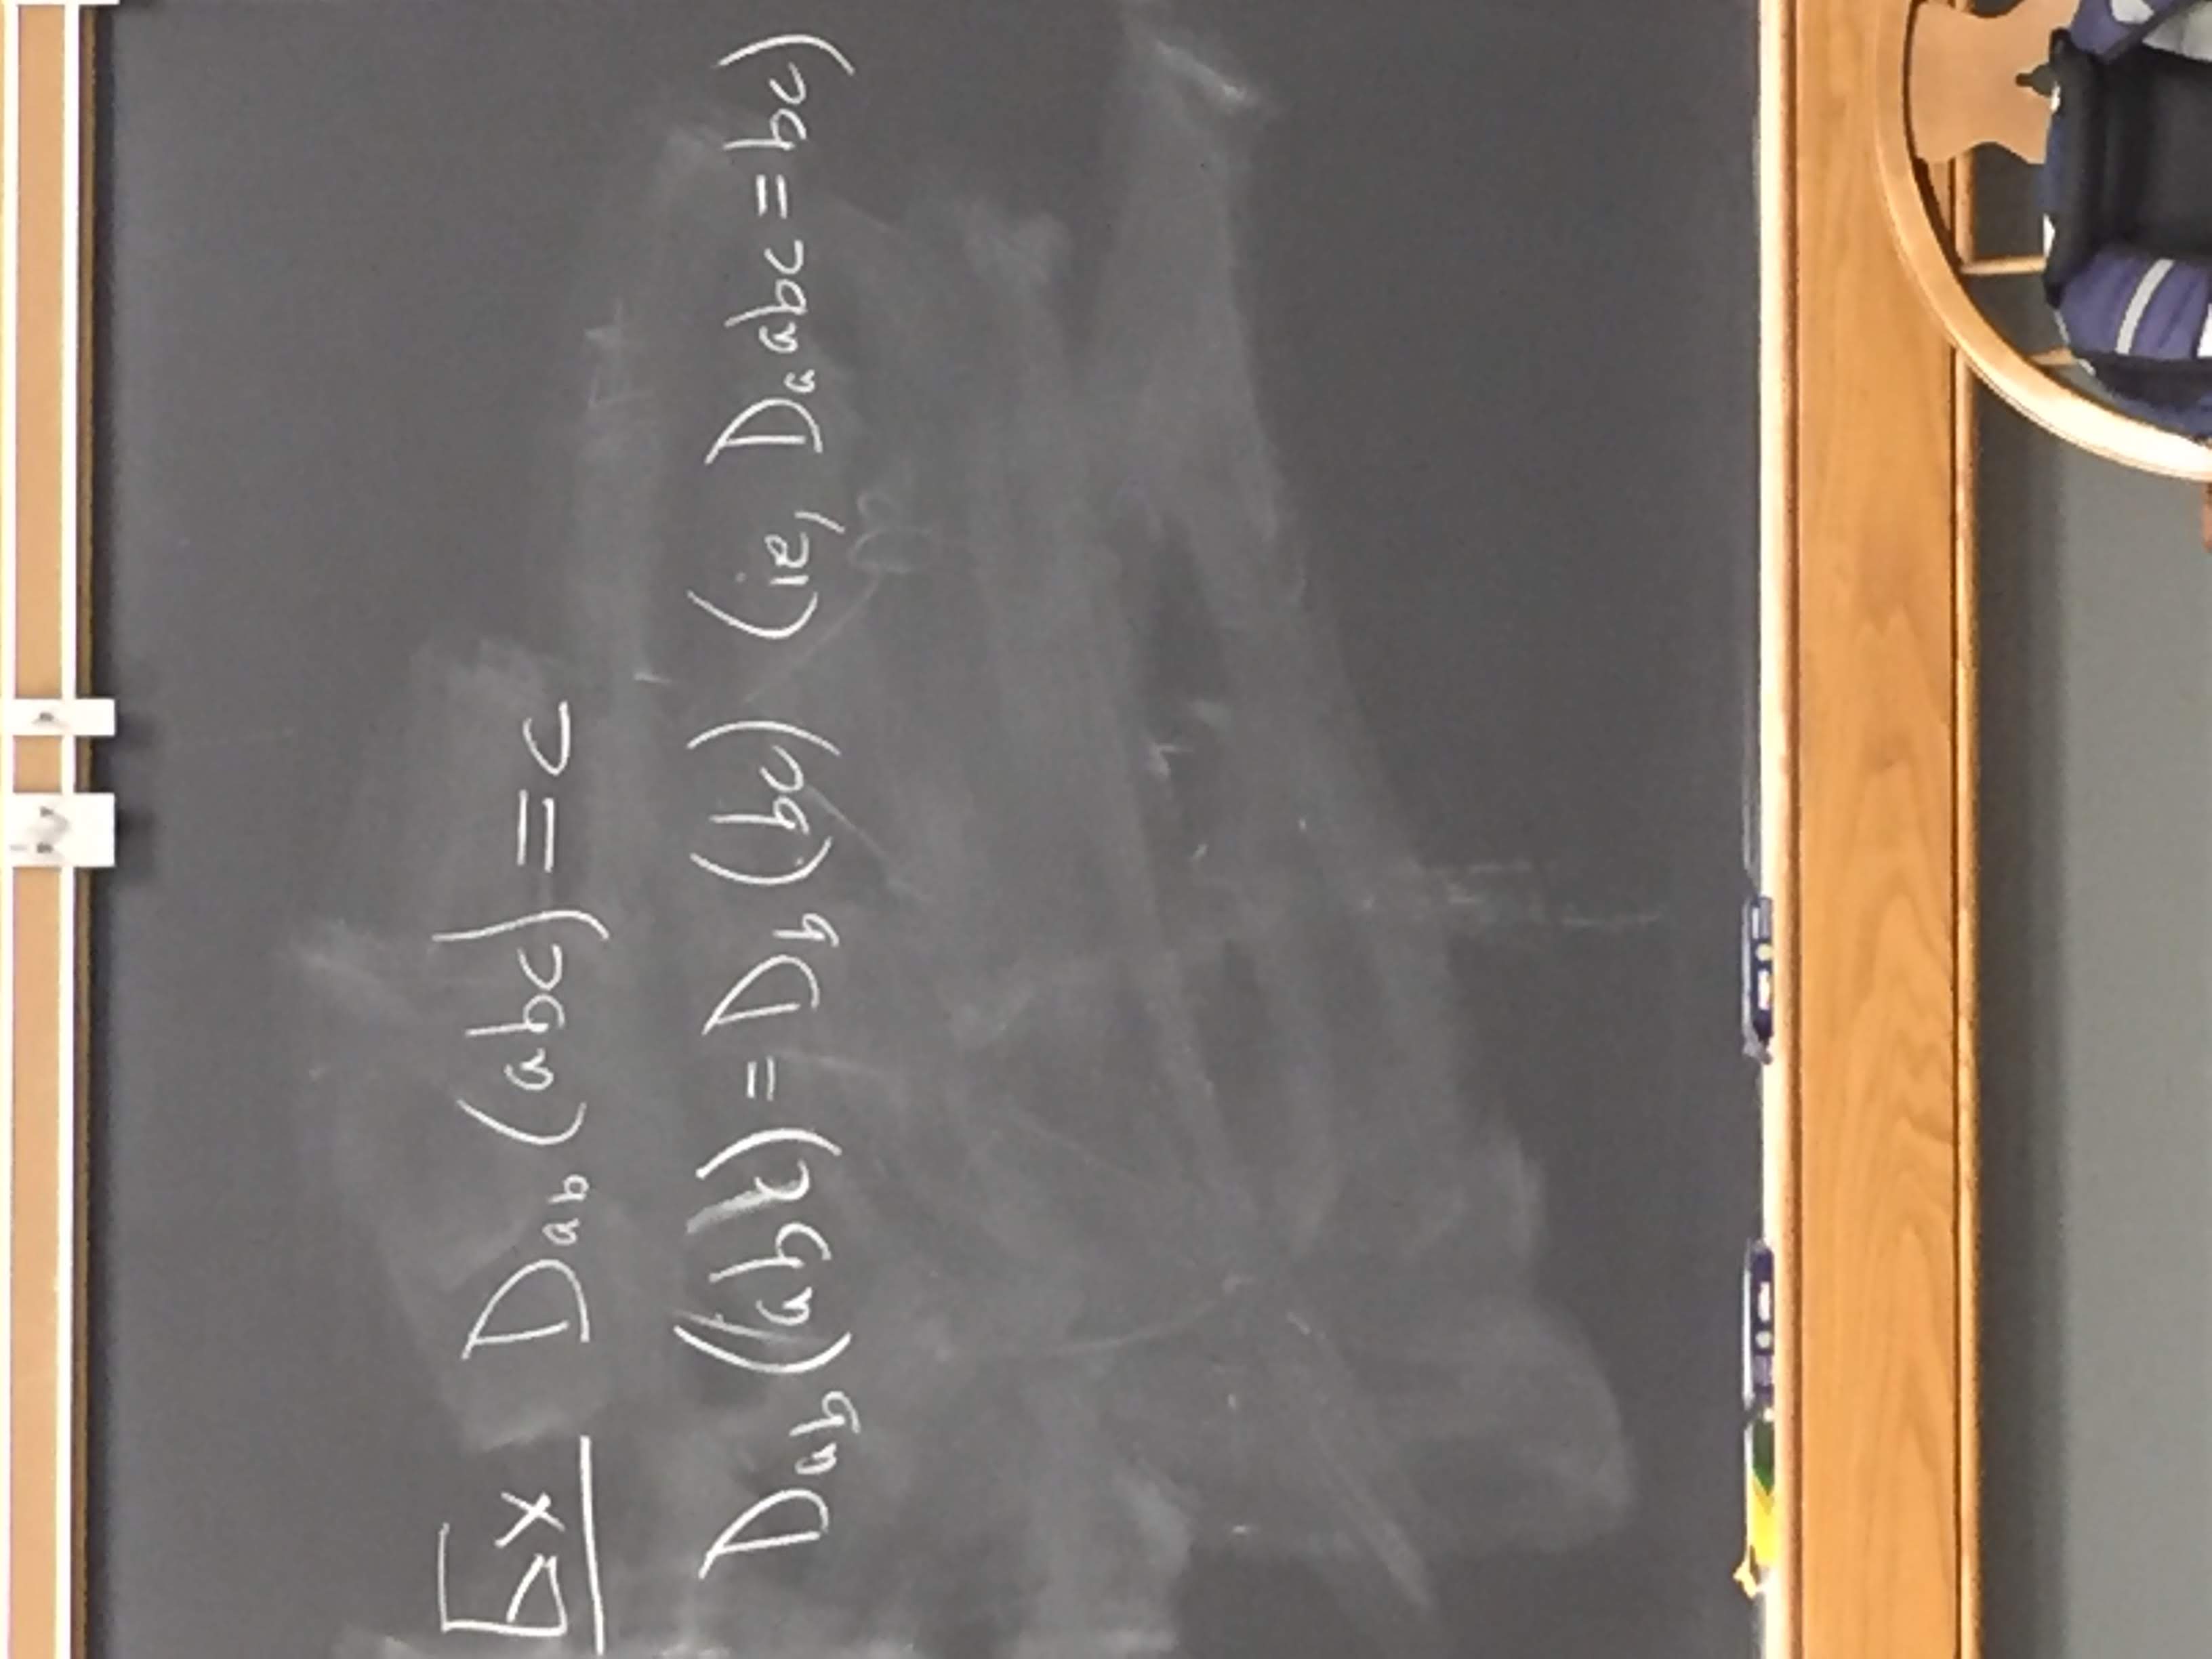 Ex D_ab (abc) = c
D_ab (abc) = D_b (bc) (ie, D_a abc = bc)